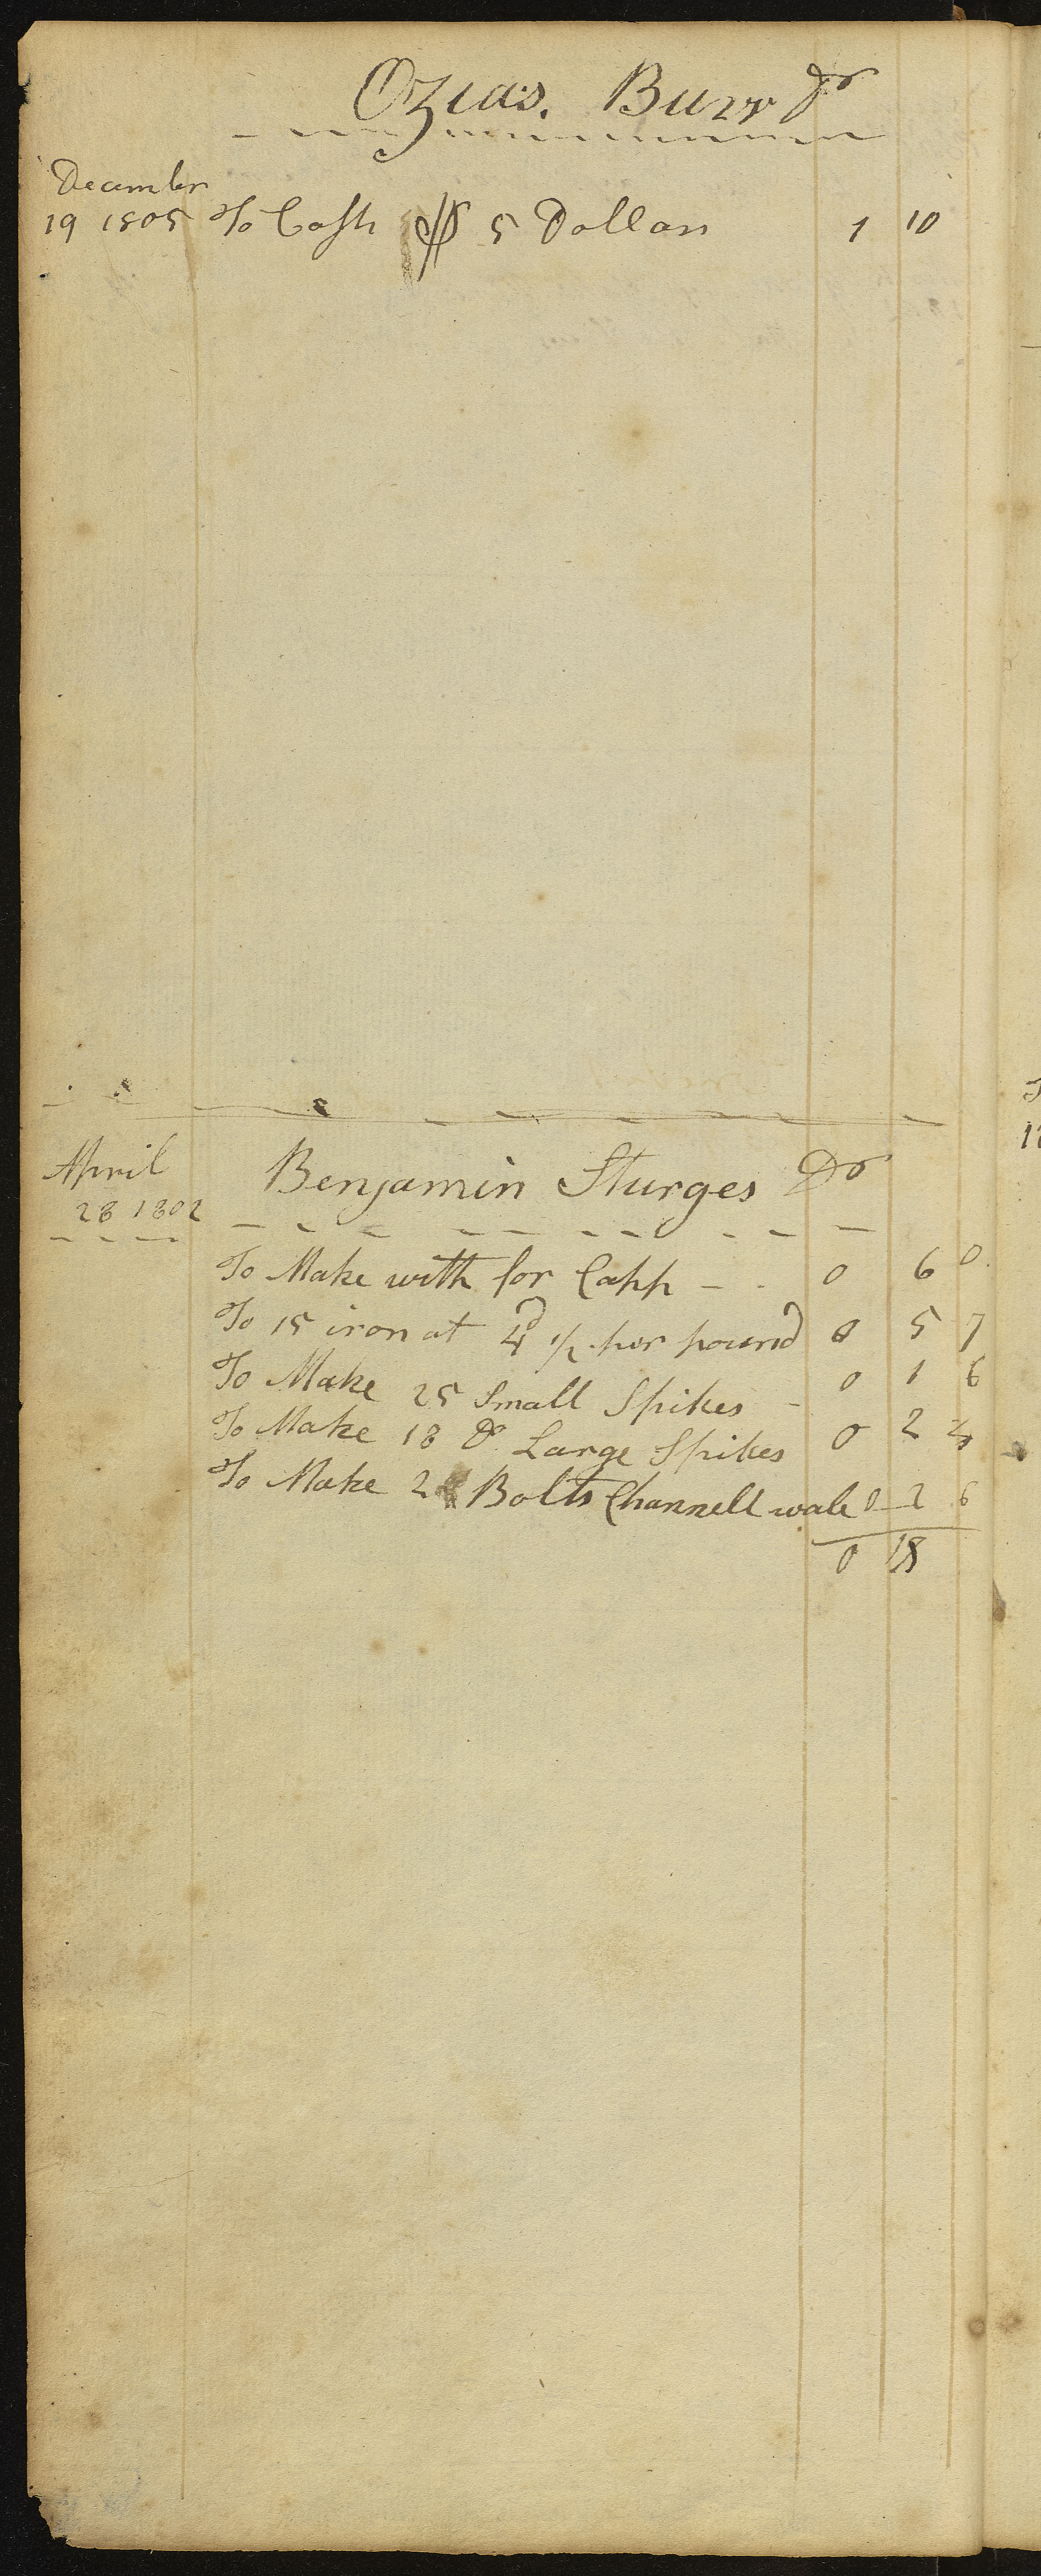 Ozias. Burr Dr
December
19 1805 To Cash $ 5 Dollars 1 10
April
28 1802
Benjamin Sturges Dr
To Make with for Capp - - 0 6 0
To 15 iron at 4d 1/2 per pound 0 5 7
To Make 25 Small Spikes - 0 1 6
To Make 18 Do Large Spikes 0 2 4
To Make 2 Bolts Channell wale 0 2 6
0 18